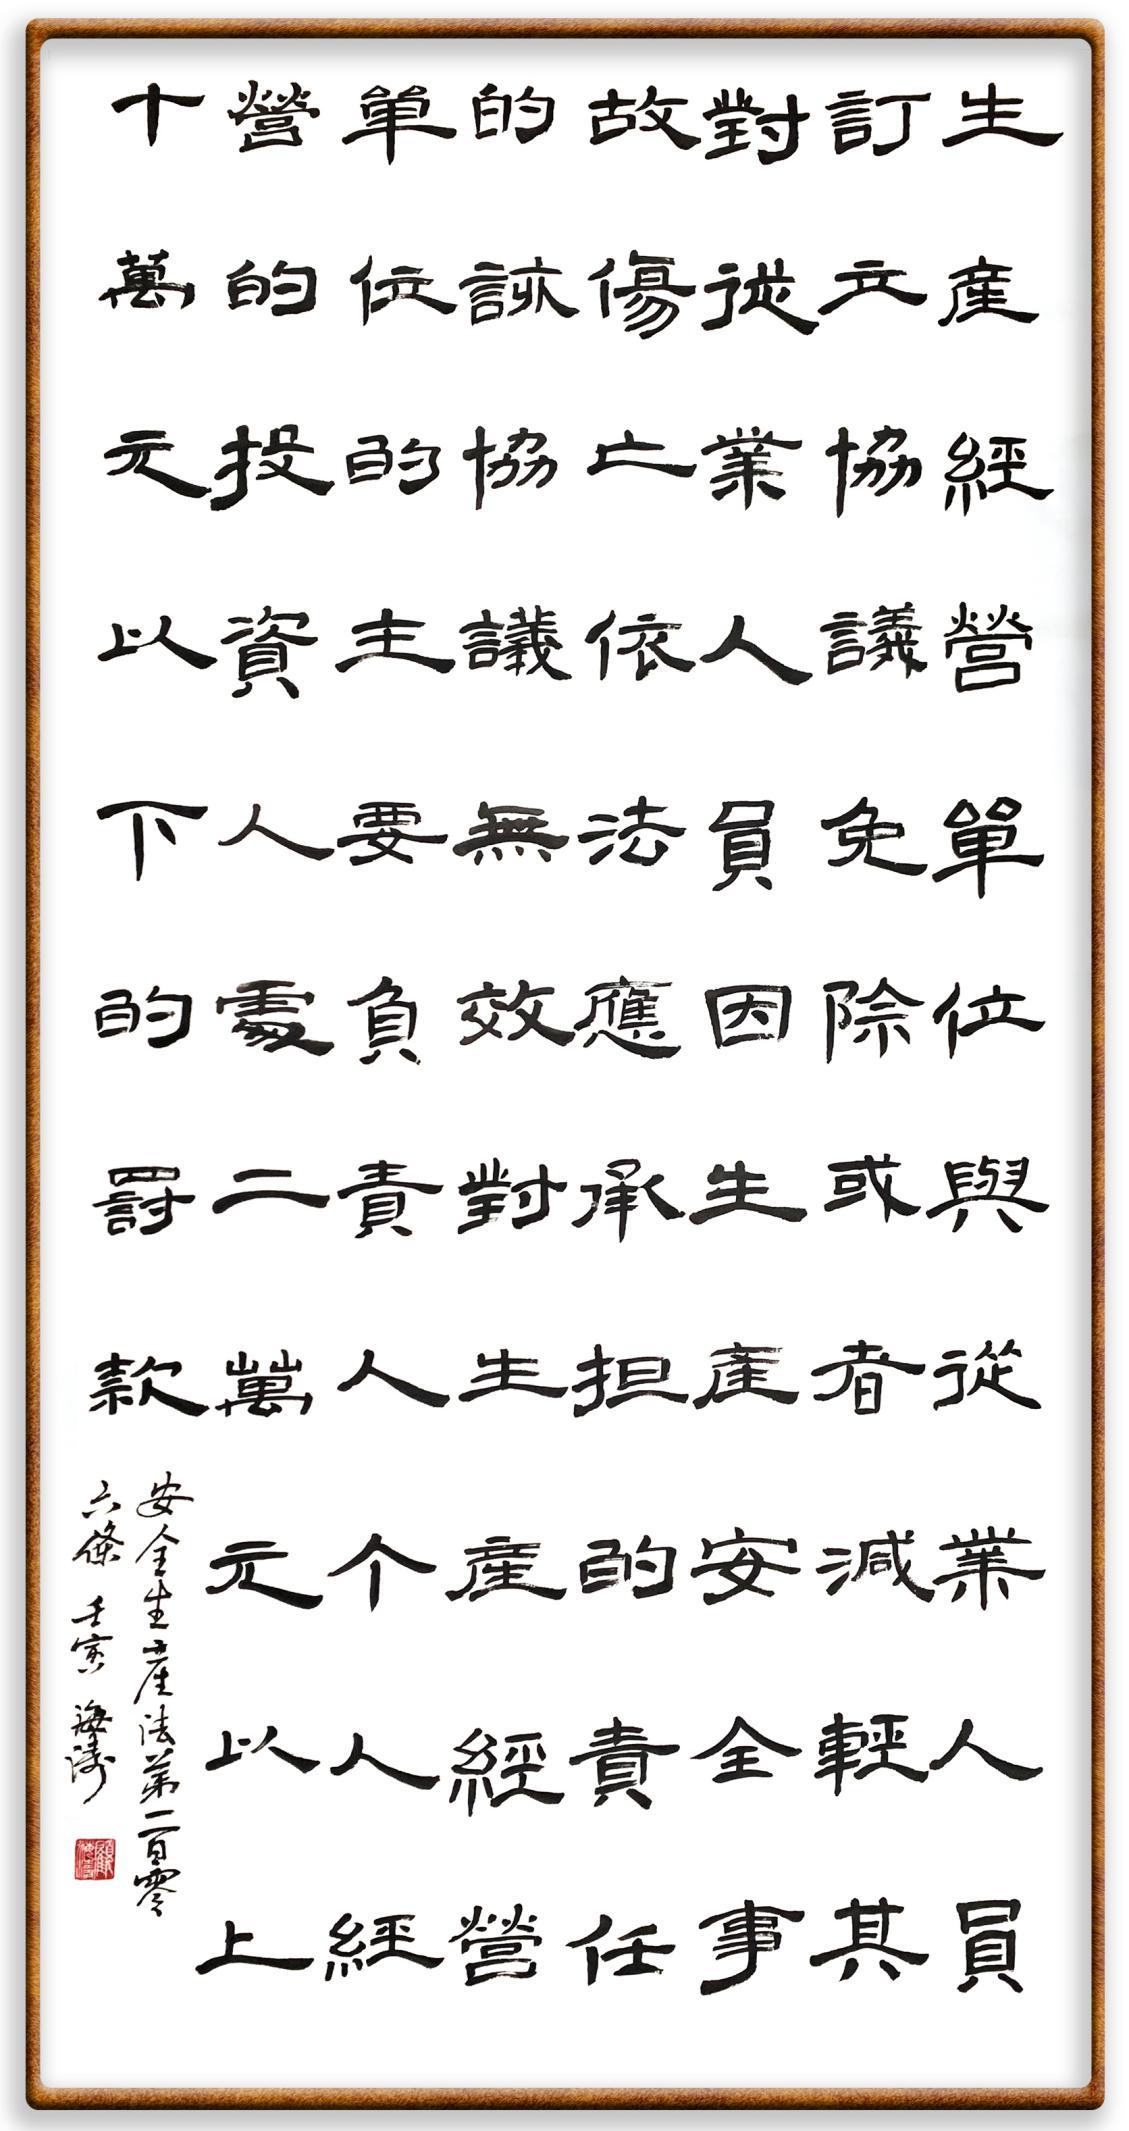 生産經營單位與從業人員
訂立協議免除或者減輕其
對從業人員因生産安全事
故傷亡依法應承担的責任
的該協議無效對生産經營
單位的主要負責人个人經
營的投資人處二萬元以上
十萬元以下的罰款
安全生産法第一百零
六條 壬寅 海濤